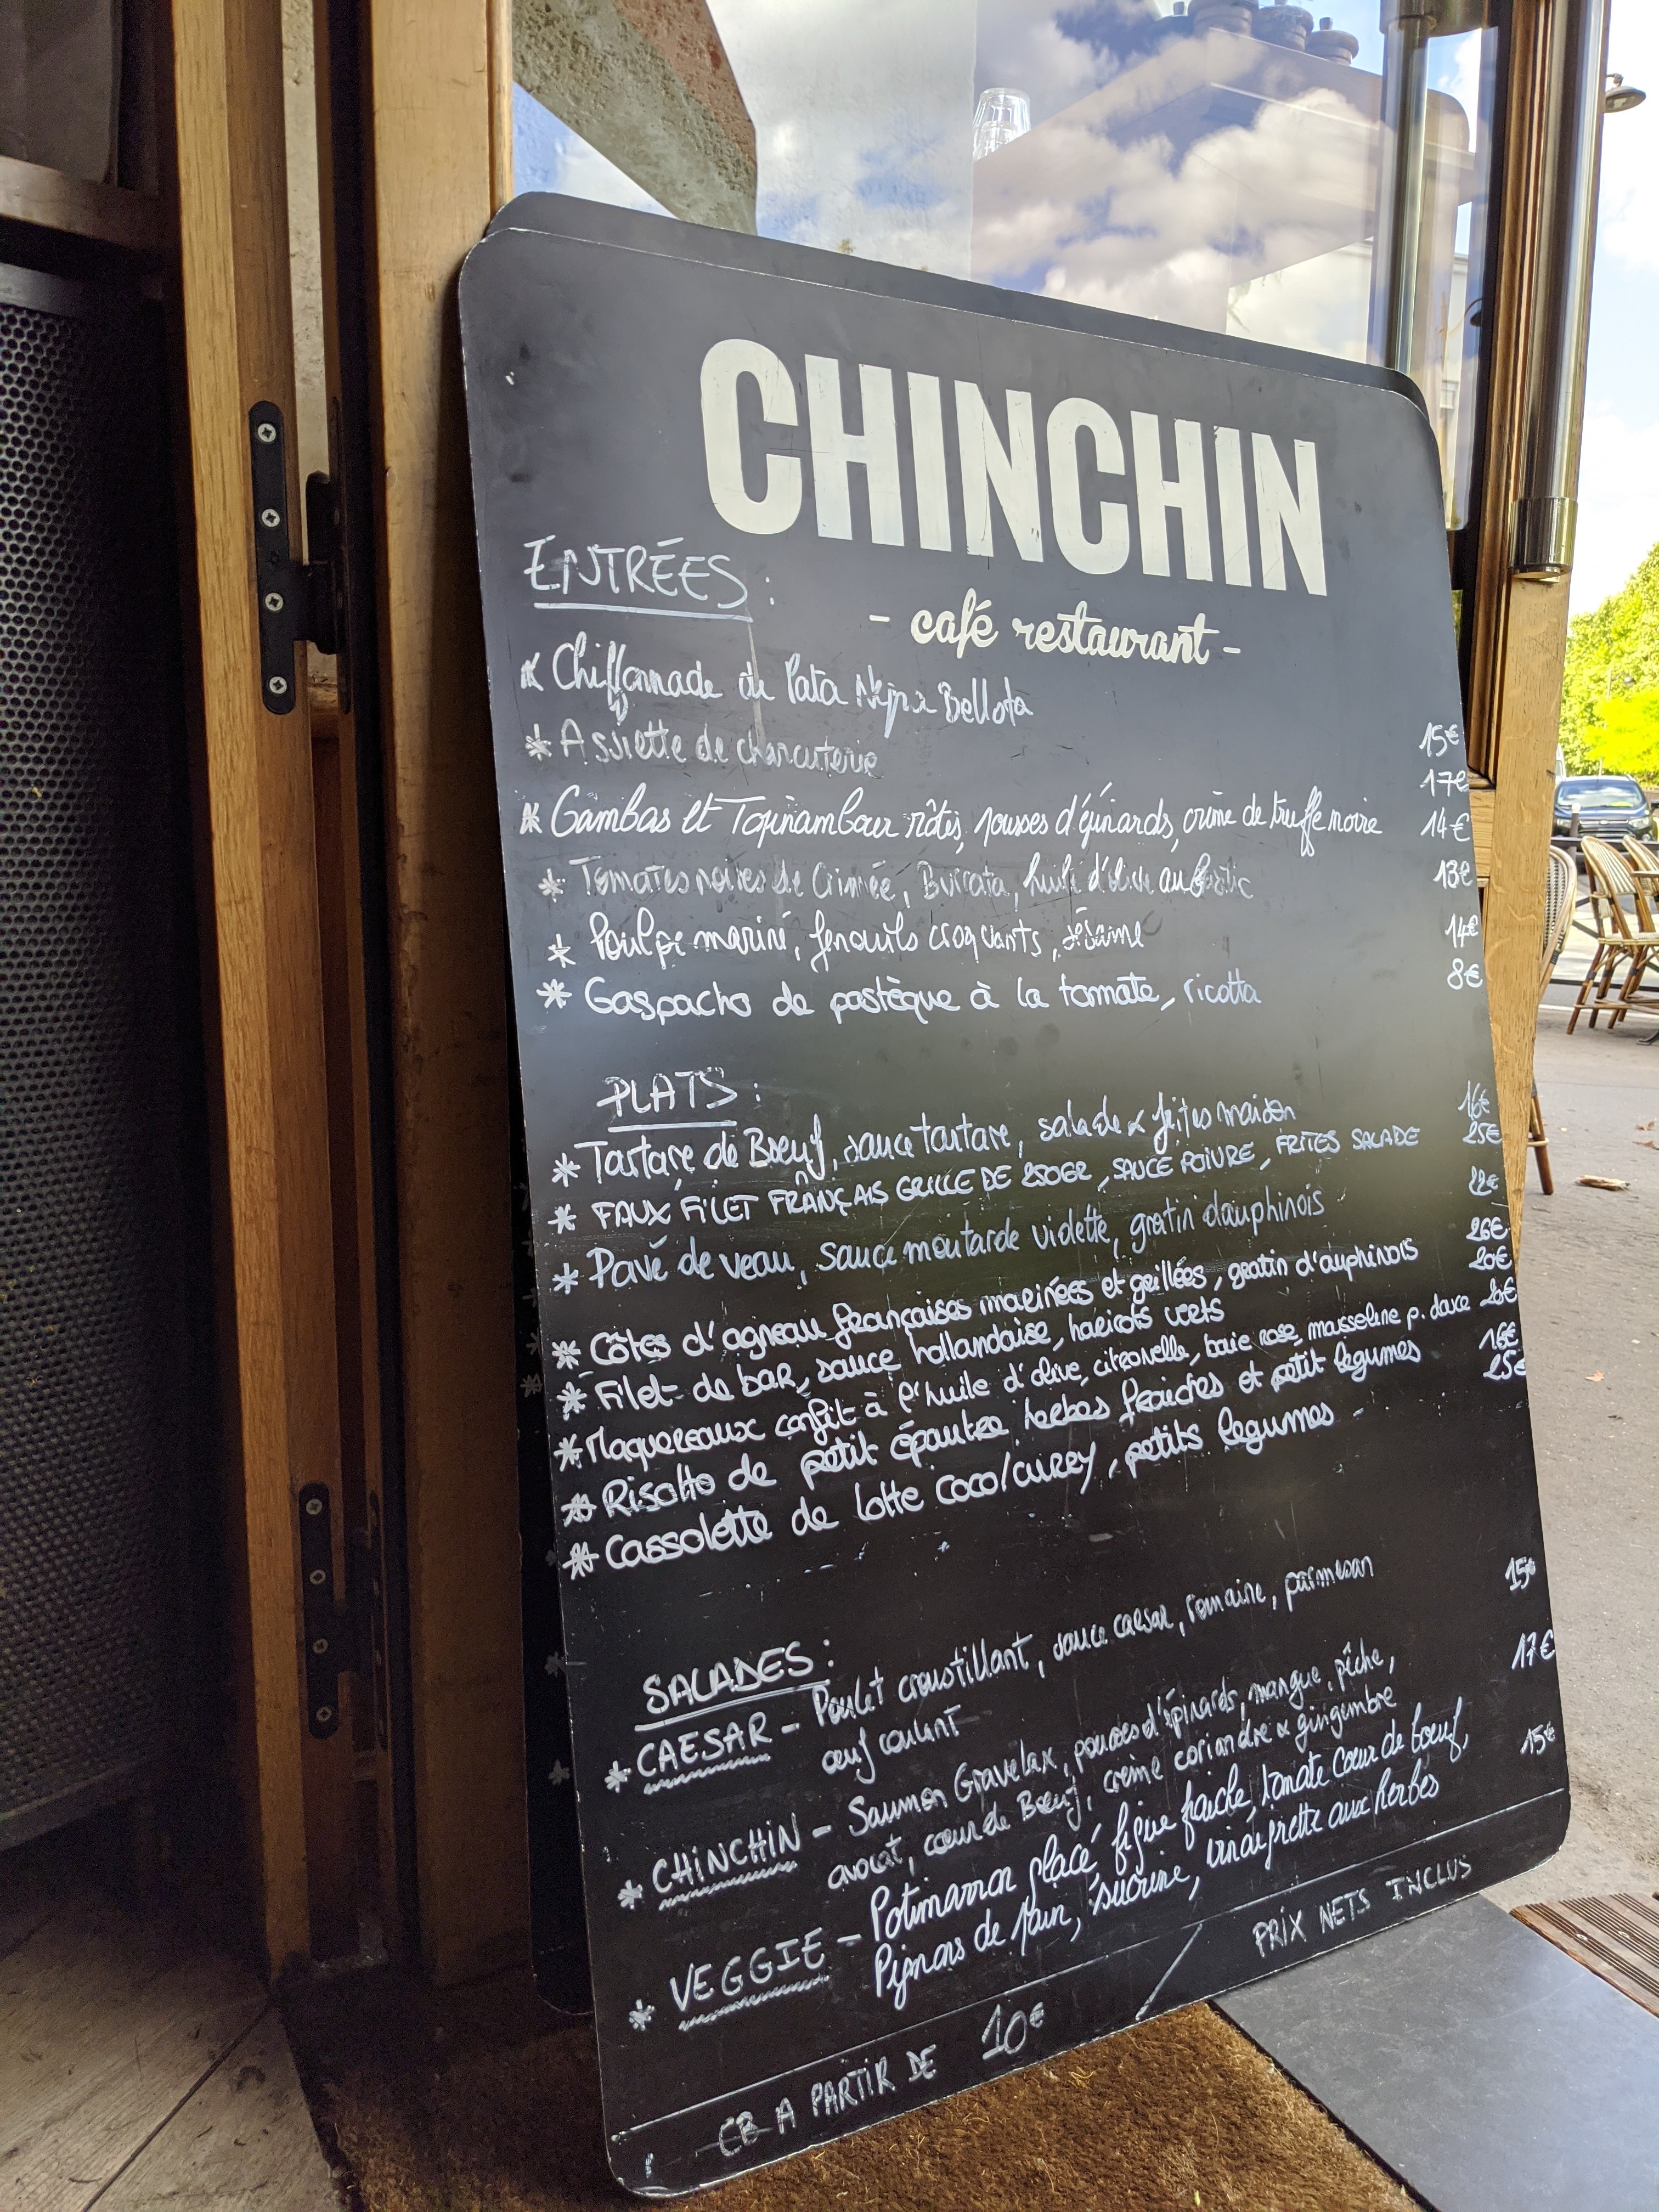 CHINCHIN
- café restaurant -
ENTRÉES :
* Chiffonnade de Pata Negra Bellota 15€
* Assiette de charcuterie 17€
* Gambas et Topinambour rôtis, pousses d'épinards, crème de truffe noire 14€
* Tomates noires de Crimée, Burrata, huile d'olive au basilic 13€
* Poulpe mariné, fenouils croquants, sésame 14€
* Gaspacho de pastèque à la tomate, ricotta 8€
PLATS :
* Tartare de Bœuf, sauce tartare, salade & frites maison 16€
* FAUX FILET FRANÇAIS GRILLE DE 250GR, SAUCE POIVRE, FRITES SALADE 25€
* Pavé de veau, sauce moutarde violette, gratin dauphinois 22€
* Côtes d'agneau françaises marinées et grillées, gratin d'auphinois 26€
* Filet de bar, sauce hollandaise, haricots verts 20€
* Maquereaux confit à l'huile d'olive, citronelle, baie rose, masseline p. douce 20€
* Risotto de petit épautre herbes fraiches et petit legumes 16€
* Cassolette de lotte coco/curry, petits legumes 25€
SALADES :
* CAESAR - Poulet croustillant, sauce caesar, romaine, parmesan 15€
œuf coulant
* CHINCHIN - Saumon Gravelax, pousses d'épinards, mangue, pêche, 17€
avocat, cœur de Bœuf, crème coriandre & gingimbre
* VEGGIE - Potimarron glacé, figue fraiche, tomate cœur de bœuf, 15€
Pignons de pain, sucrine, vinaigrette aux herbes
CB A PARTIR DE 10€ / PRIX NETS INCLUS